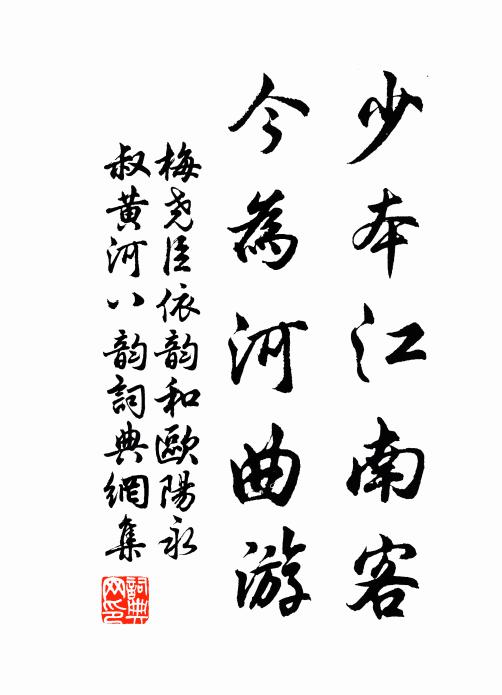 少本江南客
今為河曲游
梅尧臣依韵和歐陽永
叔黄河八韵詞典網集
詞典